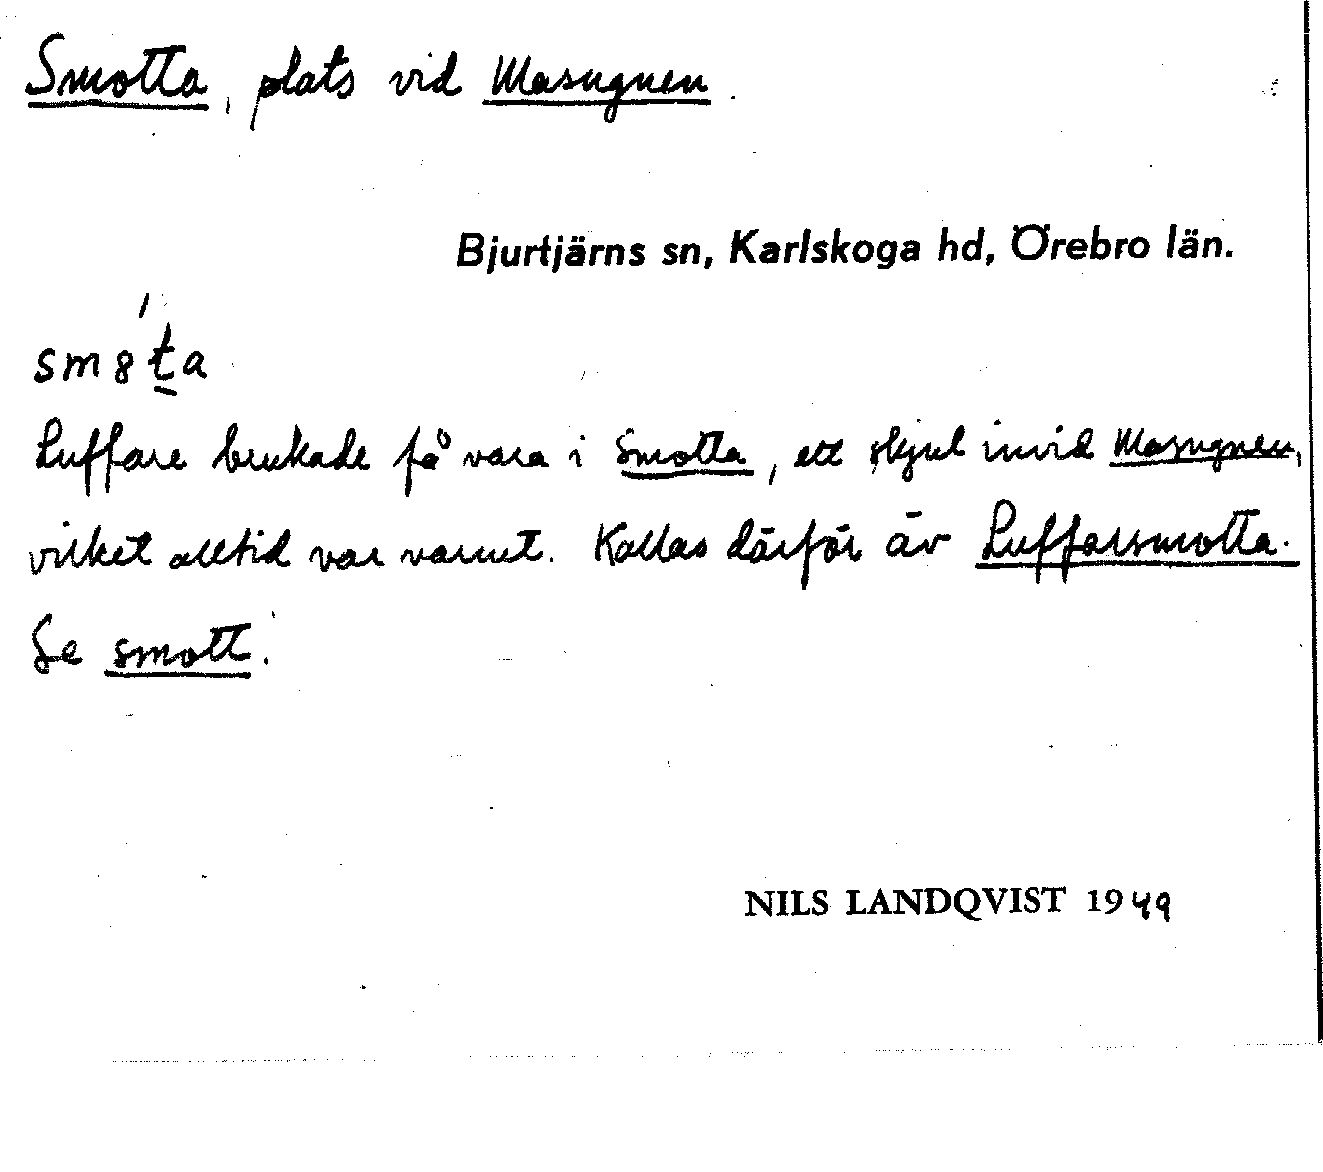 Smotta, plats vid Masugnen.
Bjurtjärns sn, Karlskoga hd, Örebro län.
sm8́t̲a
Luffare brukade få vara i Smotta, ett skjul invid Masugnen,
vilket alltid var varmt. Kallas därför äv Luffarsmotta.
Se smott.
NILS LANDQVIST 1949